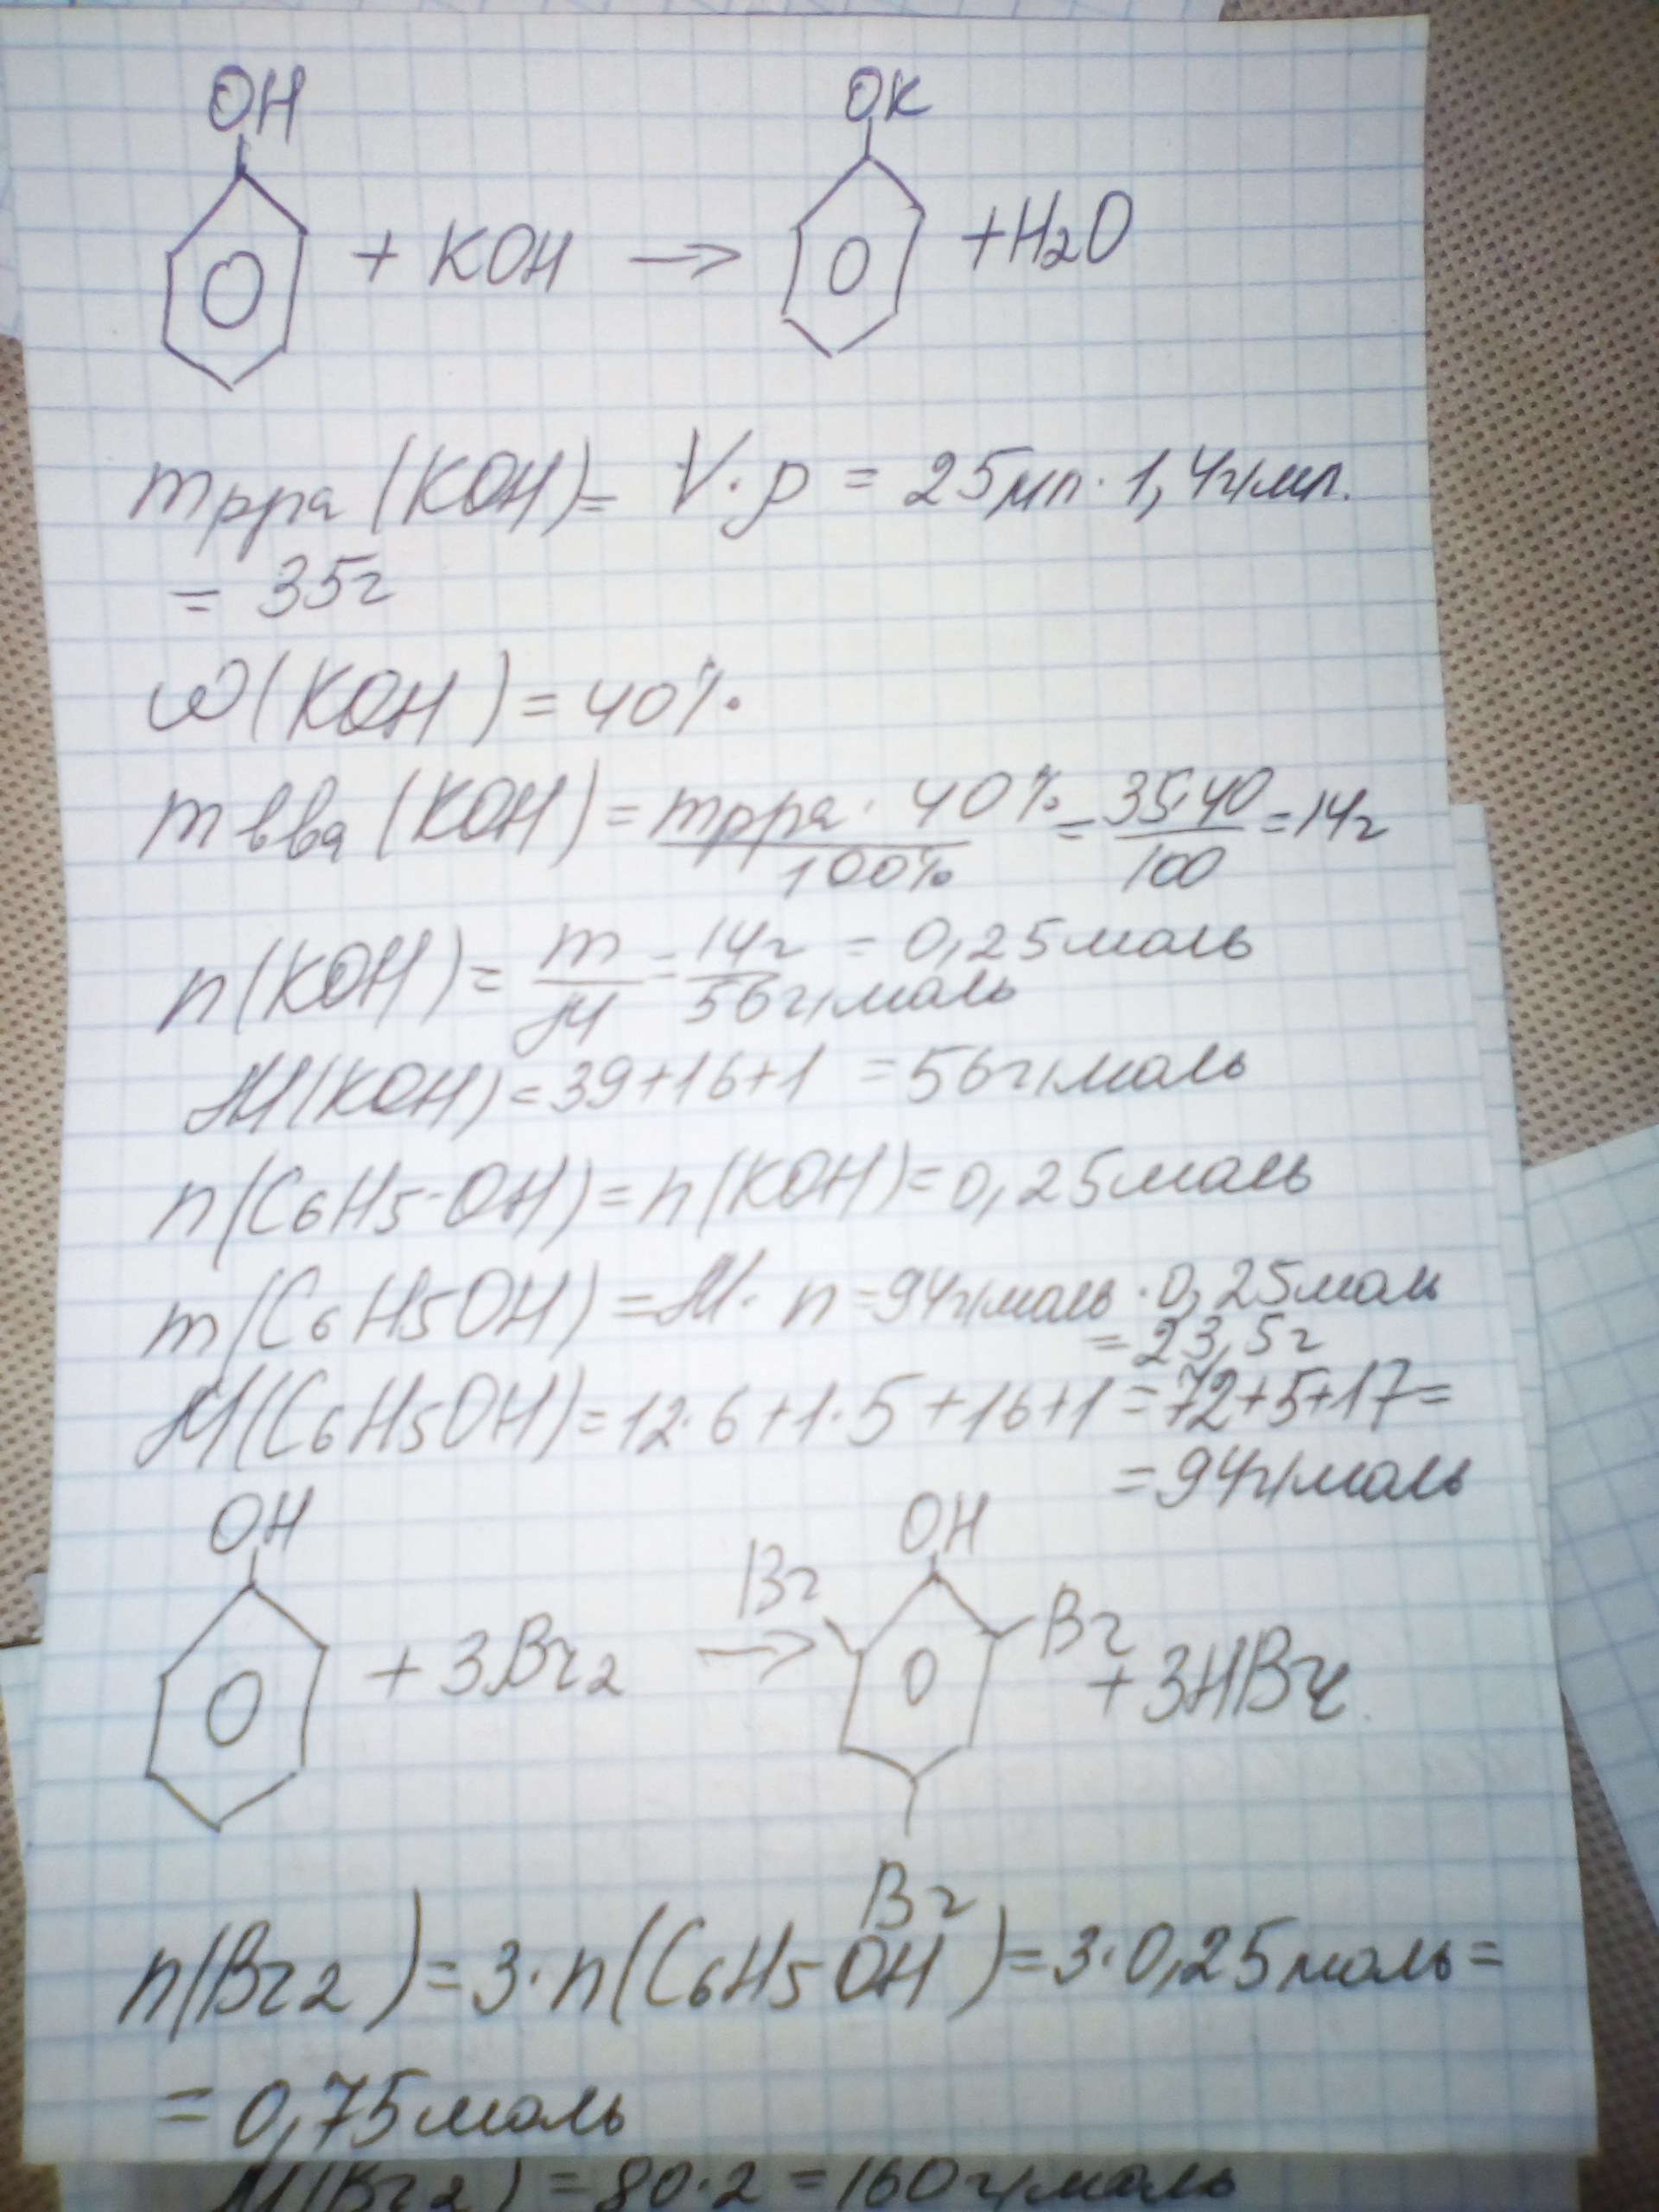 OH
OK
+ KOH → + H2O
mрра (KOH) = V · ρ = 25мл · 1,4г/мл.
= 35г
ω(KOH) = 40%.
m вва (KOH) = mрра · 40% / 100% = 35·40 / 100 = 14г
n(KOH) = m / M = 14г / 56г/моль = 0,25моль
M(KOH) = 39+16+1 = 56г/моль
n(C6H5-OH) = n(KOH) = 0,25моль
m(C6H5OH) = M · n = 94г/моль · 0,25моль
= 23,5г
M(C6H5OH) = 12·6+1·5+16+1 = 72+5+17 =
= 94г/моль
OH
OH
Br
Br
+ 3Br2 → + 3HBr
Br
n(Br2) = 3·n(C6H5OH) = 3·0,25моль =
= 0,75моль
M(Br2) = 80·2 = 160г/моль